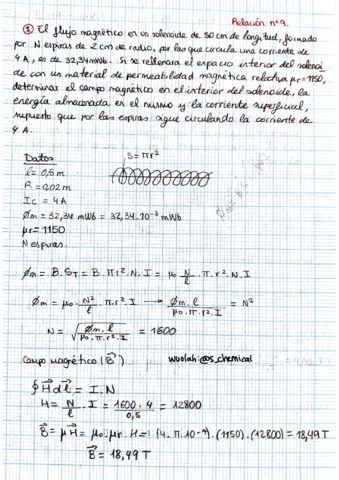 Relación nº9.
① El flujo magnético en un solenoide de 50 cm de longitud, formado
por N espiras de 2 cm de radio, por las que circula una corriente de
4 A, es de 32,34 mWb. Si se rellenara el espacio interior del solenoi-
de con un material de permeabilidad magnética relativa μr=1150,
determinar el campo magnético en el interior del solenoide, la
energía almacenada en el mismo y la corriente superficial,
supuesto que por las espiras sigue circulando la corriente de
4 A.
Datos
S=πr²
l=0,5m
R=0,02m
Ic=4A
Øm=32,34 mWb = 32,34·10⁻³ mWb
μr=1150
N espiras.
Øm = B.ST = B.πr².N.I = μ₀ N/l .π.r².N.I
Øm = μ₀. N²/l .π.r².I → Øm.l / μ₀.π.r².I = N²
N = √(Øm.l / μ₀.π.r².I) = 1600
Campo magnético (B⃗)
wuolah:@s_chemical
∮H⃗dl⃗ = I.N
H = N/l . I = 1600·4 / 0,5 = 12800
B⃗ = μH⃗ = μ₀.μr.H = (4.π.10⁻⁷).(1150).(12800) = 18,49 T
B⃗ = 18,49 T